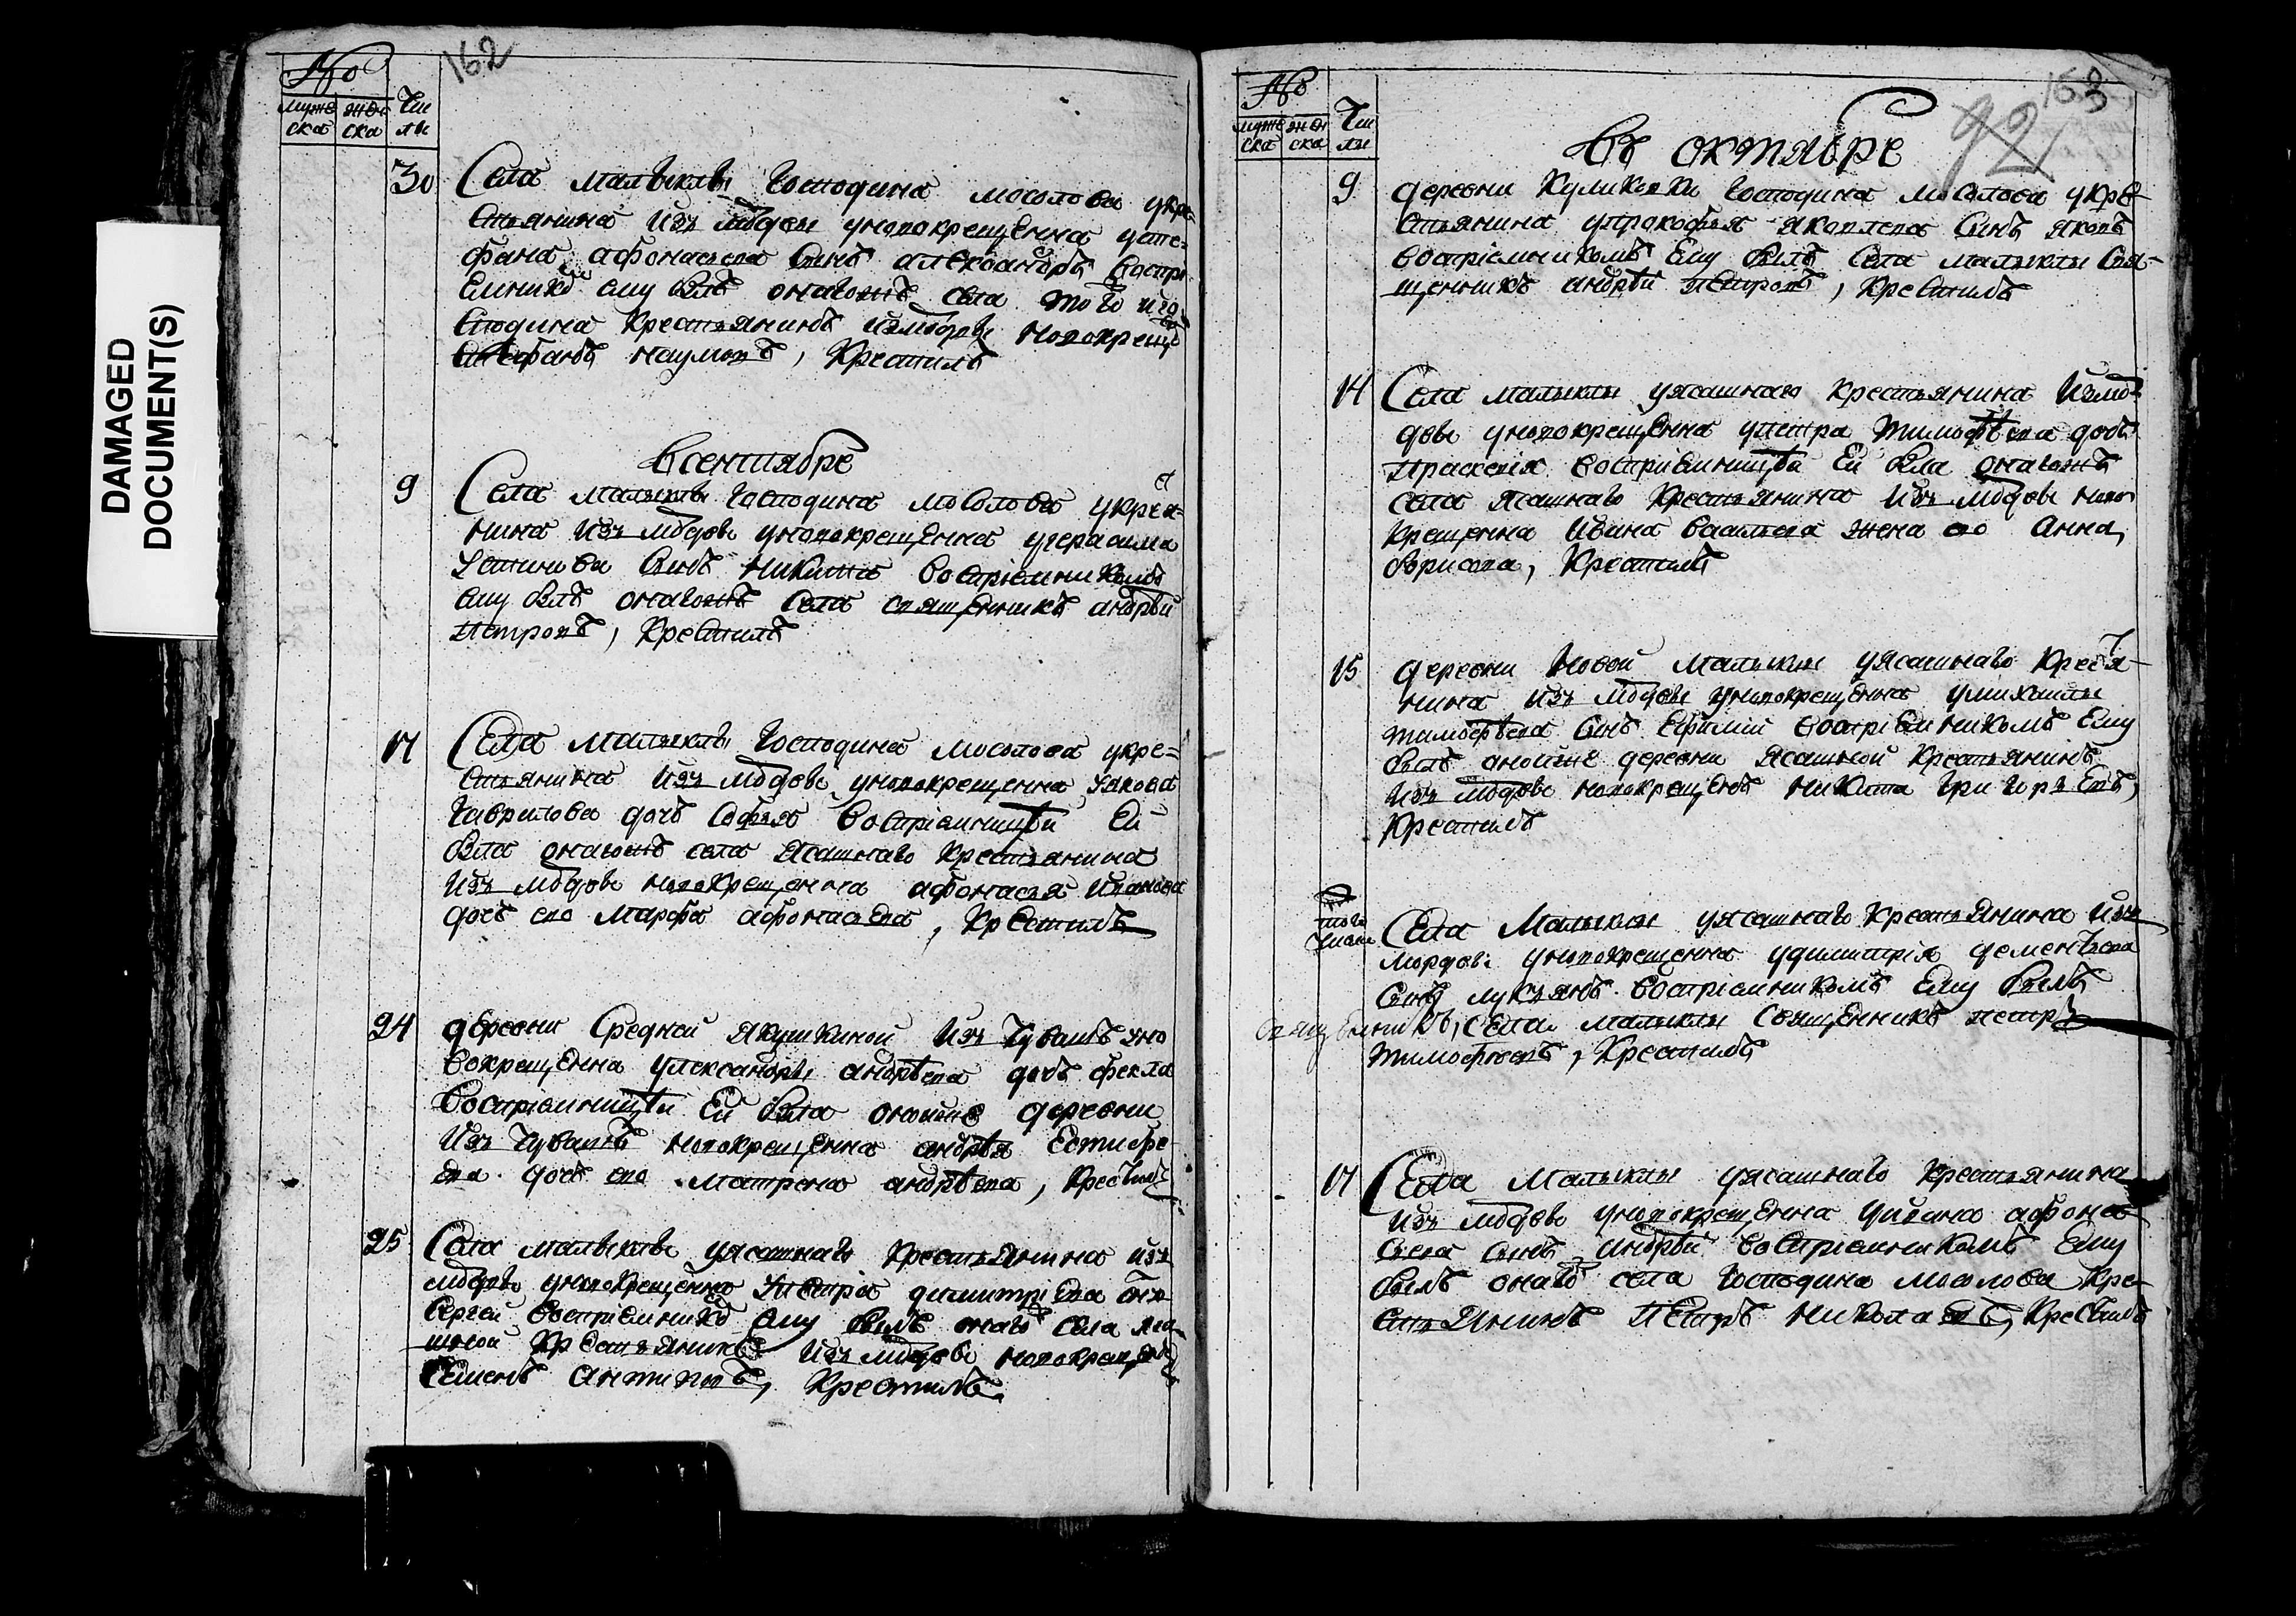 DAMAGED
DOCUMENT(S)
162
№
муже ска
жен ска
Чи слы
30
Села малыклы господина мосолова укре-
стьянина изъ мордвы уновокрещенна усте-
фана афонасьева сынъ александръ воспри
емникъ ему былъ онагожъ села того и го
сподина крестьянинъ измордвы новокрещ
стефанъ наумовъ, крестилъ
Всентябре
9
Села малыклы господина мосолова укрестья-
нина изъ мордвы уновокрещенна угерасима
устинова сынъ никита восприемникомъ
ему былъ онагожъ села священникъ андрей
петровъ, крестилъ
17
Села малыклы господина мосолова укре-
стьянина изъ мордвы уновокрещенна уякова
гаврилова дочь софья восприемницей ей
была онагожъ села ясашнаго крестьянина
изъ мордвы новокрещенна афонасья иванова
дочь ево марфа афонасьева, крестилъ
24
деревни средней якушкиной изъ чувашъ уно
вокрещенна улександры андрѣева дочь фекла
восприемницей ей была оной же деревни
изъ чувашъ новокрещенна андрѣя естифе
ева дочь ево матрена андрѣева, крестилъ
25
Села малыклы уясашнаго крестьянина изъ
мордвы уновокрещенна упетра димитриева сынъ
сергей восприемникъ ему былъ онагожъ села яса
шной крестьянинъ изъ мордвы новокрещенъ
семенъ антиповъ, крестилъ
№
муже ска
жен ска
Чи слы
163
92
Въ октябре
9
деревни куликовки господина мосолова укре
стьянина упрокофья яковлева сынъ яковъ
восприемникомъ ему былъ села малыклы свя-
щенникъ андрей петровъ, крестилъ
14
Села малыклы уясашнаго крестьянина измор
двы уновокрещенна упетра тимофѣева дочь
праскевия восприемницей ей была онагожъ
села ясашнаго крестьянина изъ мордвы ново
крещенна ивана васильева жена ево анна
борисова, крестилъ
15
деревни новой малыклы уясашнаго крестья-
нина изъ мордвы уновокрещенна умихаилы
тимофѣева сынъ ефимий восприемникомъ ему
былъ оной же деревни ясашной крестьянинъ
изъ мордвы новокрещенъ никита григорьевъ,
крестилъ
того числа
Села малыклы уясашнаго крестьянина изъ
мордвы уновокрещенна удимитрия дементьева
сынъ лукьянъ восприемникомъ ему былъ
села малыклы священникъ петръ
тимофѣевъ, крестилъ
17
Села малыклы уясашнаго крестьянина
изъ мордвы уновокрещенна уивана афона
сьева сынъ андрей восприемникомъ ему
былъ онагожъ села господина мосолова кре
стьянинъ петръ николаевъ, крестилъ